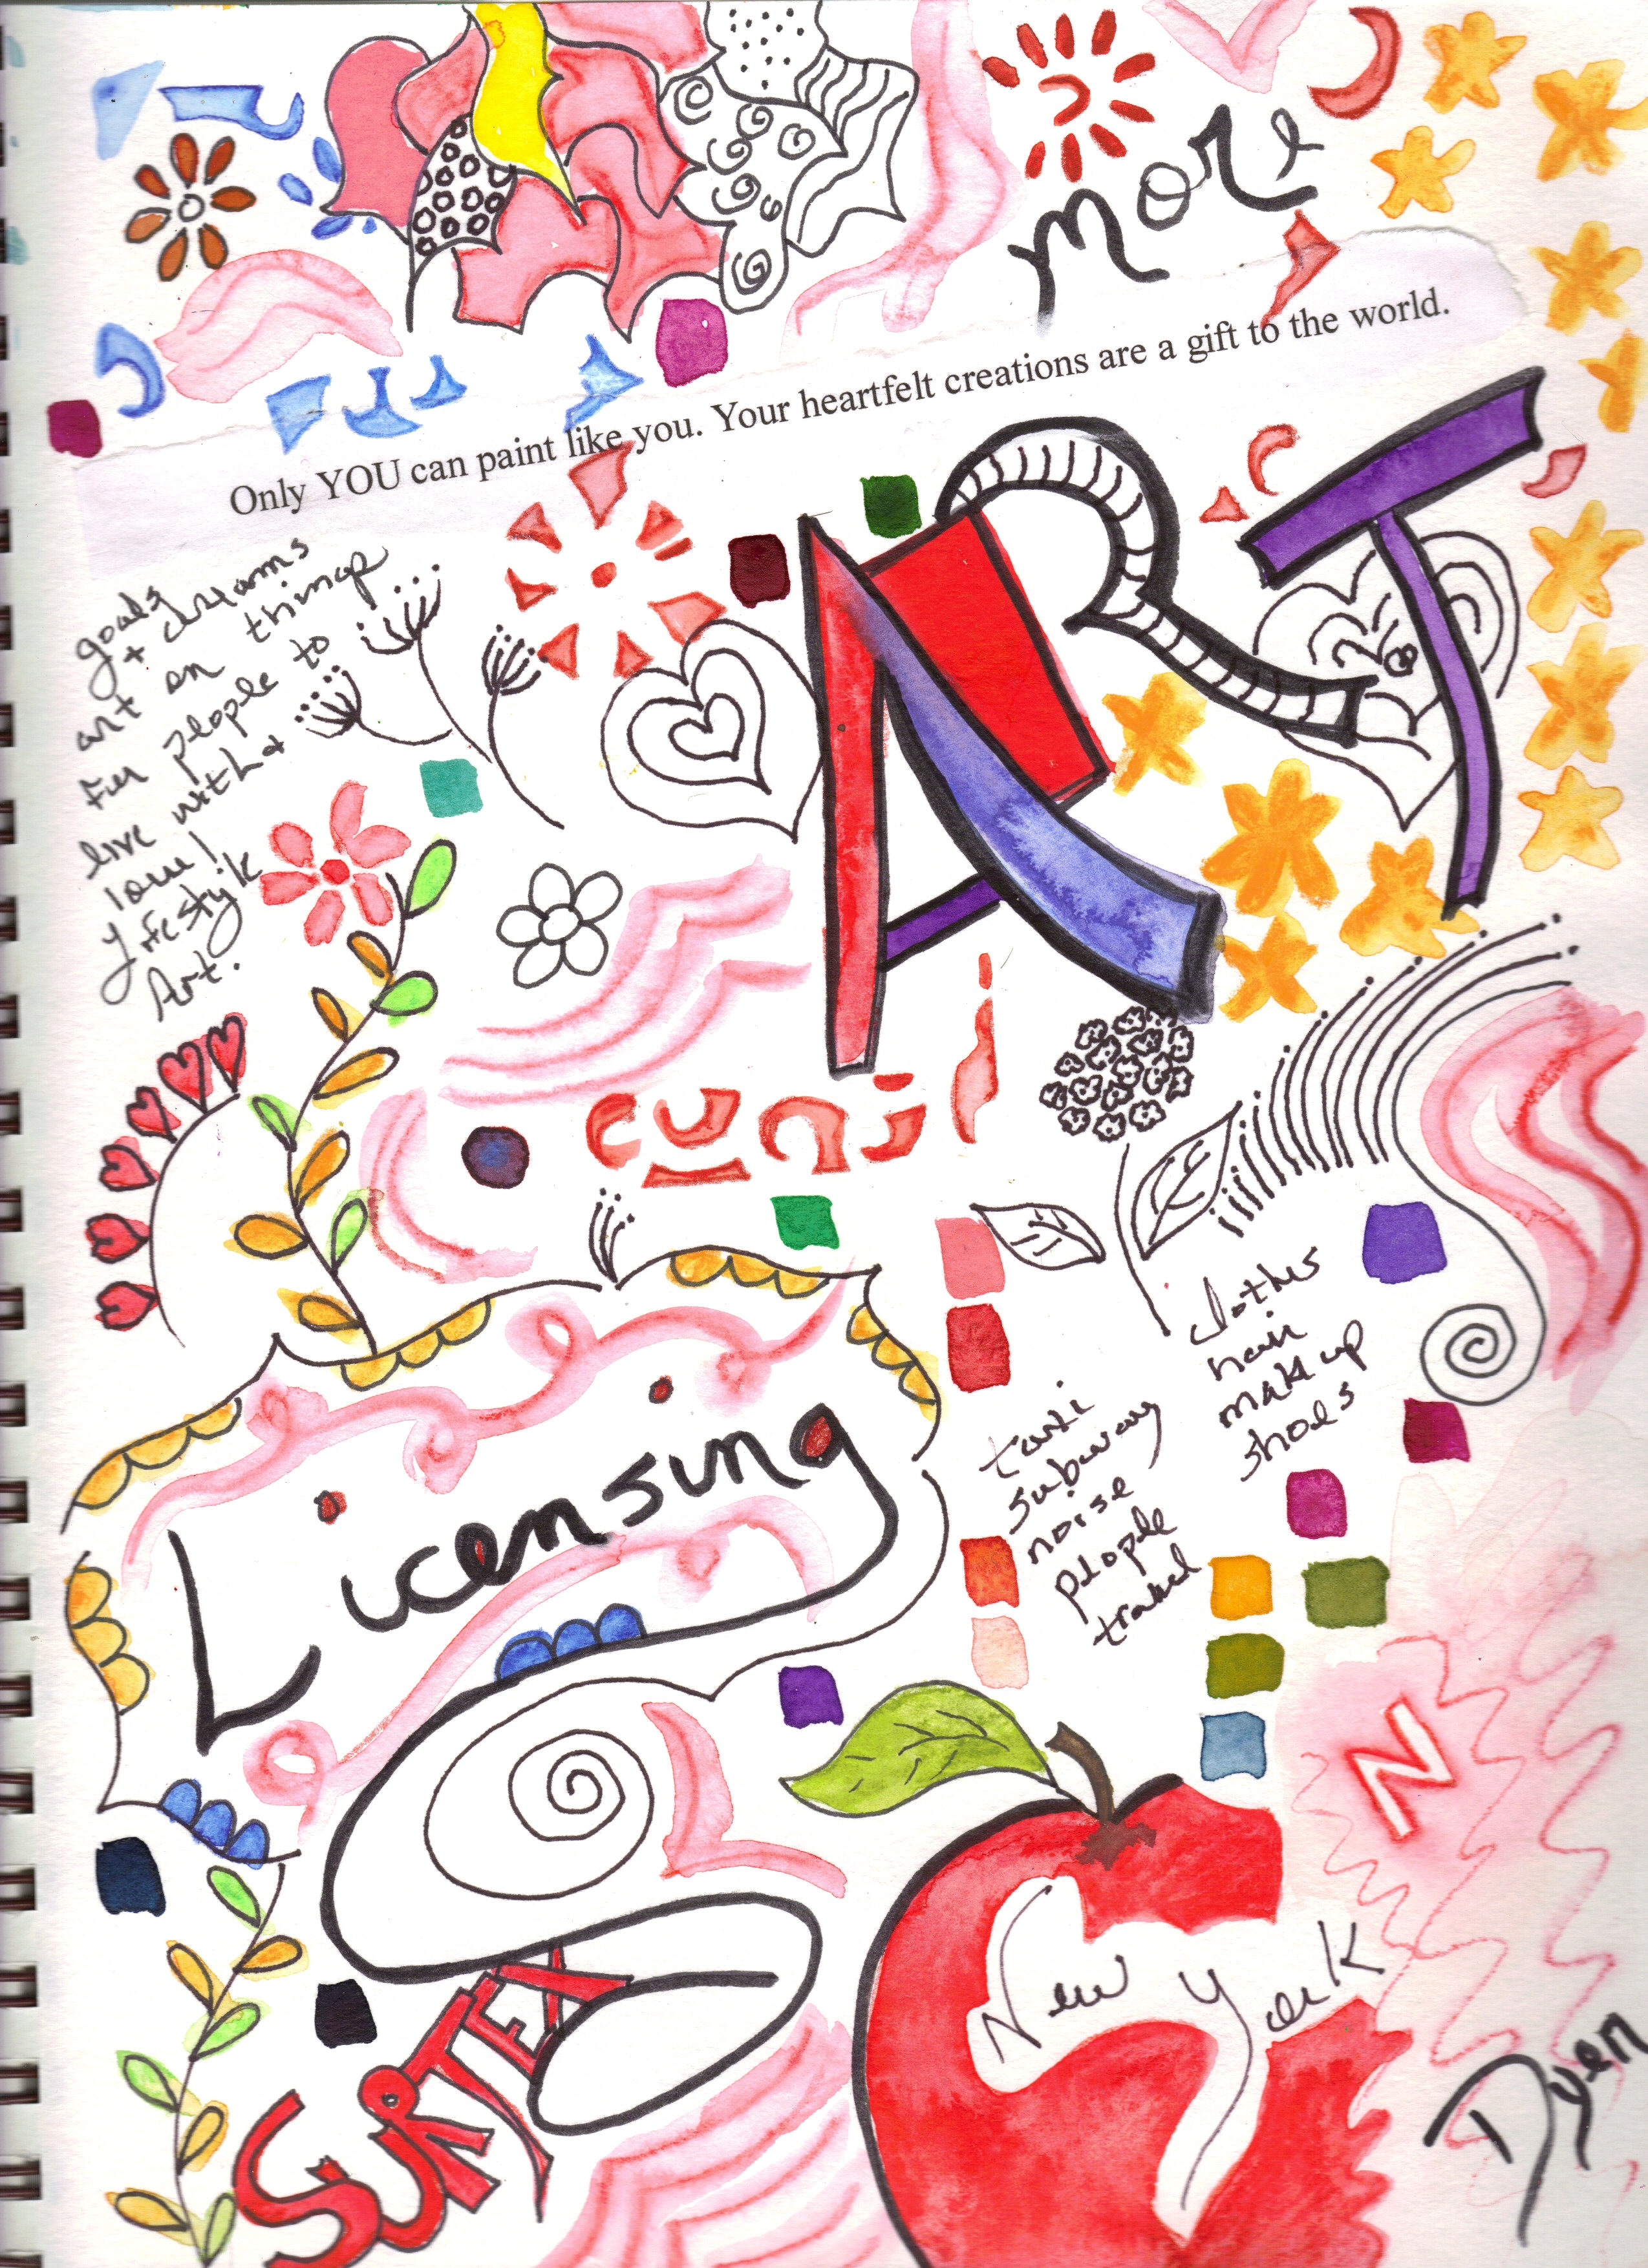 more
Only YOU can paint like you. Your heartfelt creations are a gift to the world.
ART
goals
+ dreams
art on things
for people to
live with +
love!
Lifestyle
Art.
clothes
hair
makeup
shoes
taxi
subway
noise
people
travel
Licensing
N
New York
SURTEX
Dyen